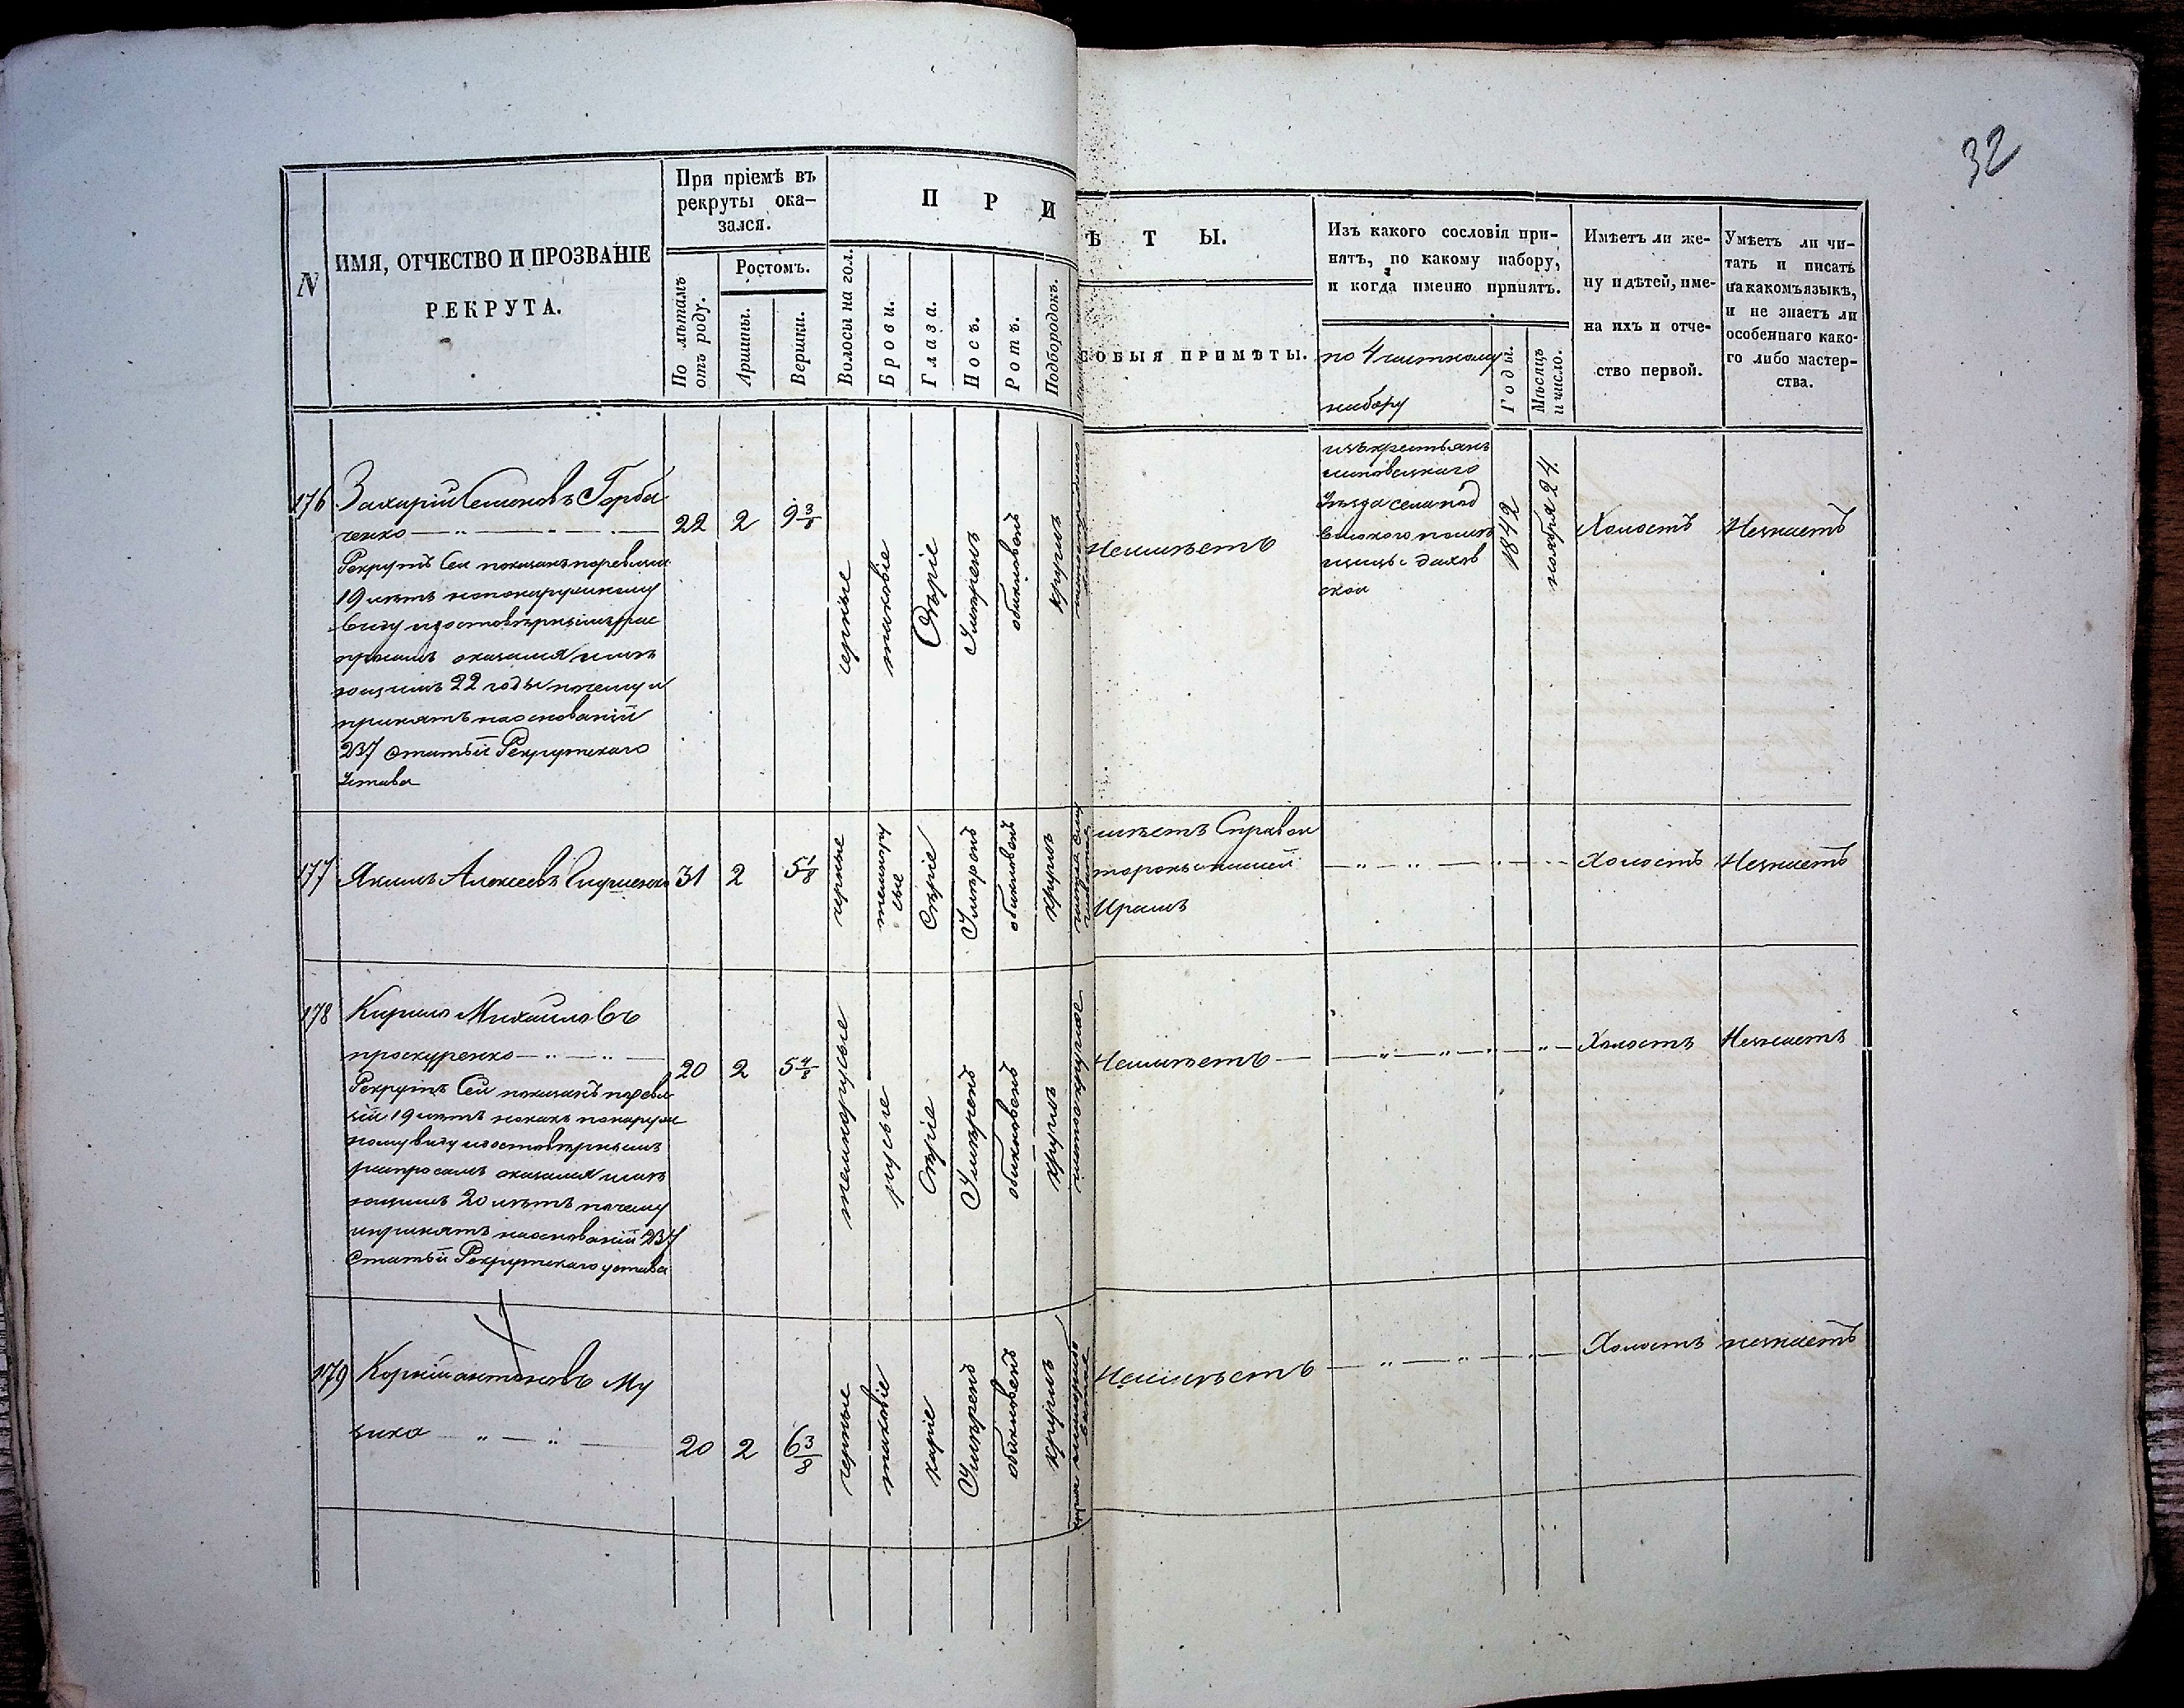 32
N
ИМЯ, ОТЧЕСТВО И ПРОЗВАНІЕ
РЕКРУТА.
При пріемѣ въ
рекруты ока-
зался.
По лѣтамъ
отъ роду.
Ростомъ.
Аршины.
Вершки.
П Р И
Волосы на гол.
Брови.
Глаза.
Носъ.
Ротъ.
Подбородокъ.
Ѣ Т Ы.
ОБЫЯ ПРИМѢТЫ.
Изъ какого сословія при-
нятъ, по какому набору,
и когда именно принятъ.
по 4 частному
набору
Годы.
Мѣсяцъ
и число.
Имѣетъ ли же-
ну и дѣтей, име-
на ихъ и отче-
ство первой.
Умѣетъ ли чи-
тать и писать
на какомъ языкѣ,
и не знаетъ ли
особеннаго како-
го либо мастер-
ства.
176
Захарій Семеновъ Горба
ченко
Рекрутъ Сей показанъ по ревизіи
19 лѣтъ но по наружному
виду и достовѣрнымъ рас
просамъ оказался имѣ
ющимъ 22 годы почему и
принятъ на основаніи
237 статьи Рекрутскаго
Устава
22
2
9 3/8
черные
таковіе
Сѣріе
Умѣренъ
обыкновенъ
круглъ
Неимѣетъ
изъ крестьянъ
Липовецкаго
Уѣзда села под
высокого помѣ
щицы
1842
ноября 24
Холостъ
Незнаетъ
177
Якимъ Алексеевъ
31
2
5 1/8
черные
темнору
сые
Сѣріе
Умѣренъ
обыкновенъ
круглъ
имѣетъ Справой
стороны
Холостъ
Незнаетъ
178
Кирило Михайловъ
проскуренко
Рекрутъ Сей показанъ по реви
зіи 19 лѣтъ но какъ по наруж
ному виду и достовѣрнымъ
распросамъ оказался имѣ
ющимъ 20 лѣтъ почему
и принятъ на основаніи 237
Статьи Рекрутскаго устава
20
2
5 4/8
темнорусые
русые
Сѣріе
Умѣренъ
обыкновенъ
круглъ
Неимѣетъ
Холостъ
Незнаетъ
179
Корній антоновъ Му
зика
20
2
6 3/8
черные
таковіе
каріе
Умѣренъ
обыкновенъ
круглъ
Неимѣетъ
Холостъ
незнаетъ